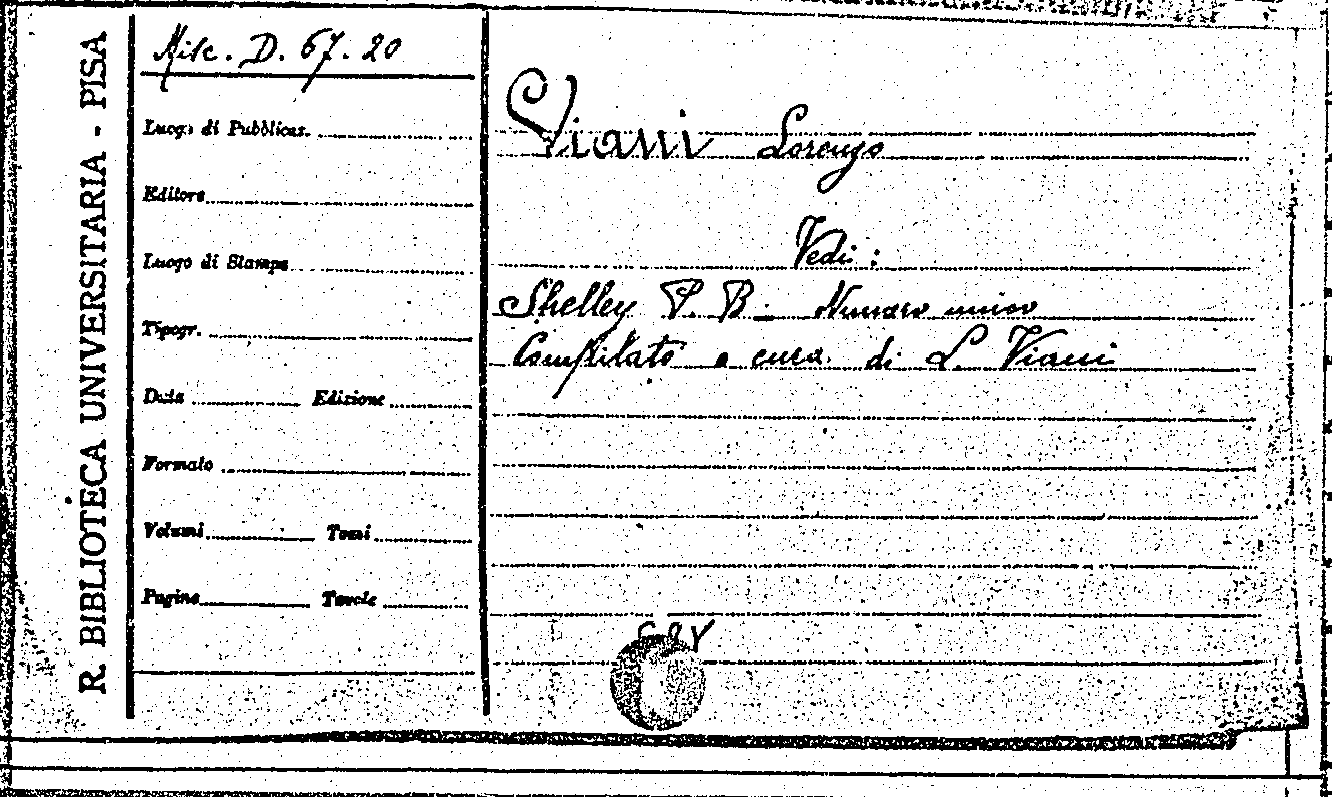 R. BIBLIOTECA UNIVERSITARIA - PISA
Misc. D. 67. 20
Luogo di Pubblicaz.
Editore
Luogo di Stampa
Tipogr.
Data Edizione
Formato
Volumi Tomi
Pagine Tavole
Viani Lorenzo
Vedi :
Shelley P. B. - Numero unico
Compilato a cura di L. Viani